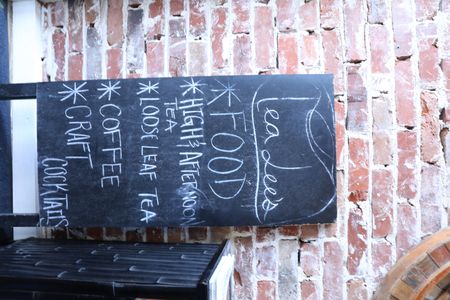 Lea Lee's
* FOOD
* HIGH & AFTERNOON
TEA
* LOOSE LEAF TEA
* COFFEE
* CRAFT
COCKTAILS